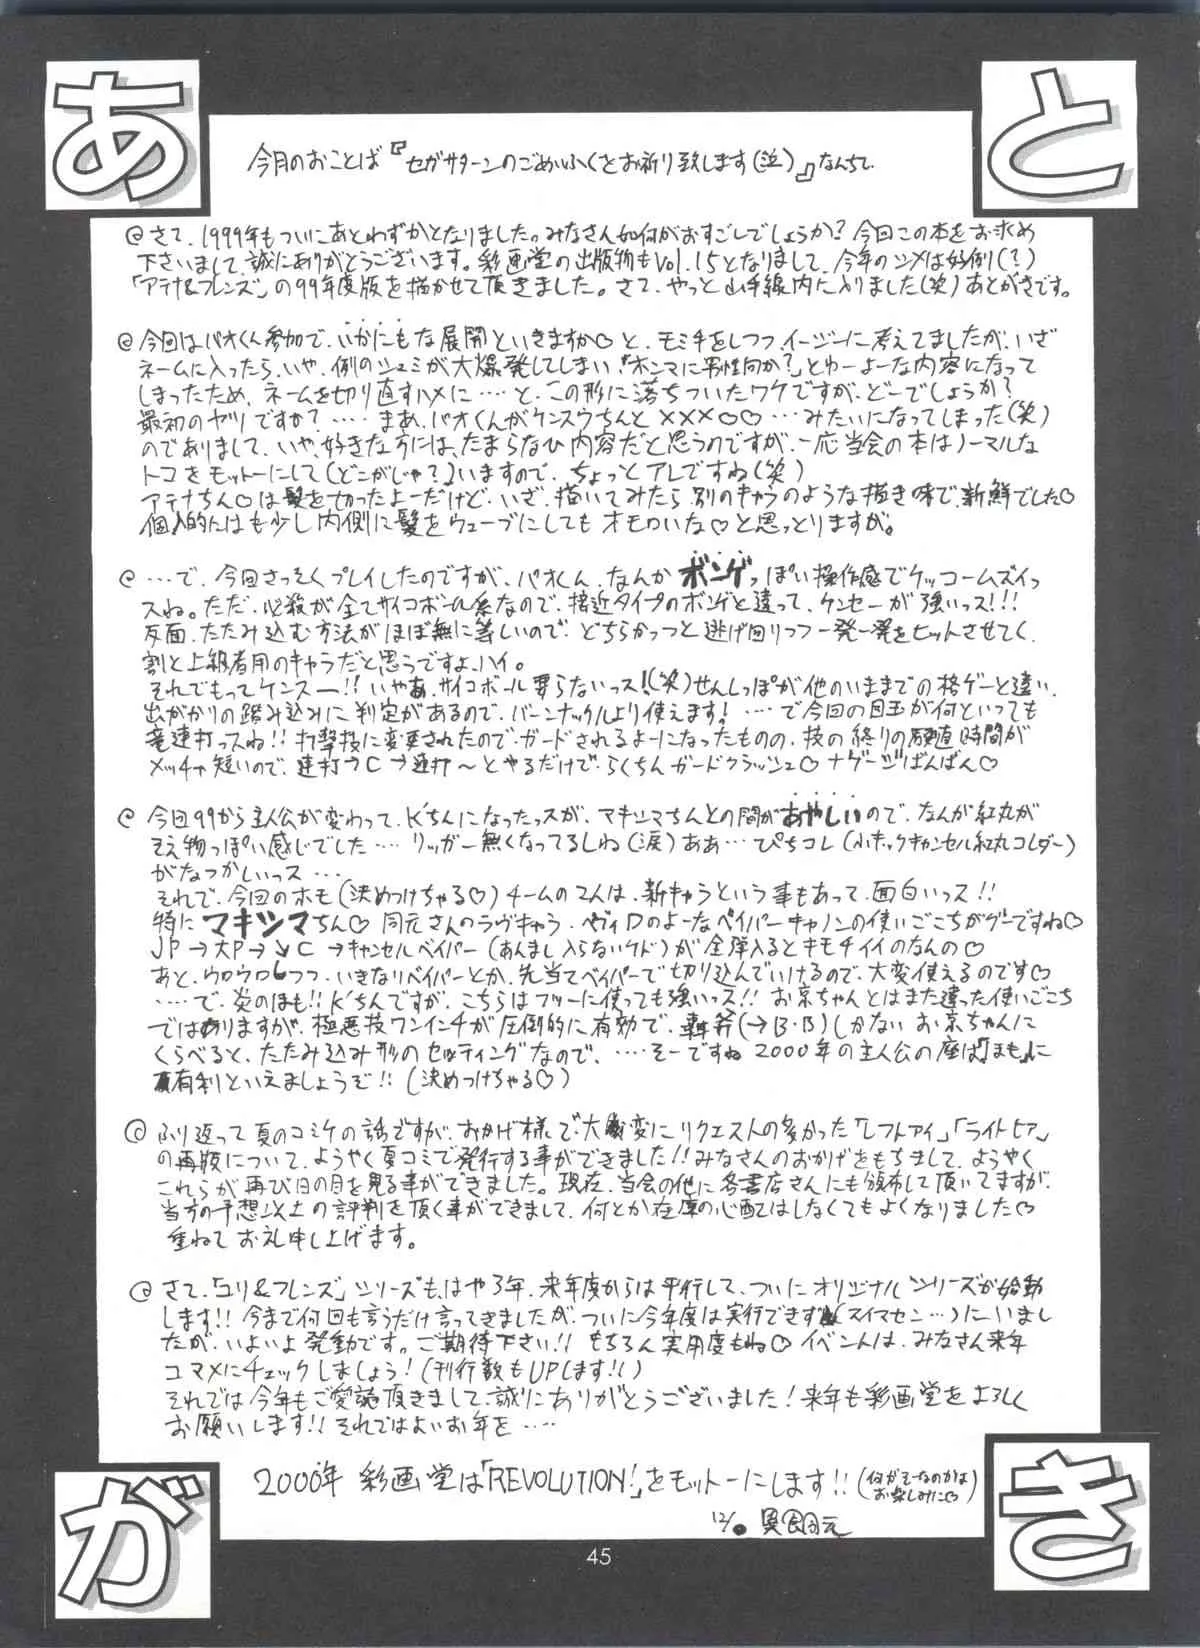 あとがき
今月のおことば『セガサターンのごめいふくをお祈り致します(泣)』なんちて
@さて、1999年もついにあとわずかとなりました。みなさん如何がおすごしでしょうか?今回この本をお求め
下さいまして、誠にありがとうございます。彩画堂の出版物もVol.15となりまして、今年のシメは好例(?)
「アテナ&フレンズ」の99年度版を描かせて頂きました。さて、やっと山手線内に入りました(笑)あとがきです。
@今回はパオくん参加で、いかにもな展開といきますか♡と、モミ手をしつつ、イージーに考えてましたが、いざ
ネームに入ったら、いや、例のシュミが大爆発してしまい「ホンマに男性向か?」とゆーよーな内容になって
しまったため、ネームを切り直すハメに……と、この形に落ちついたワケですが、どーでしょうか?
最初のヤツですか?……まあ、パオくんがケンスウちんと×××♡♡…みたいになってしまった(笑)
のでありまして、いや、好きな方には、たまらなひ内容だと思うのですが、一応当会の本はノーマルな
トコをモットーにして(どこがじゃ?)いますので、ちょっとアレですね(笑)
アテナちん♡は髪を切ったよーだけど、いざ、描いてみたら別のキャラのような描き味で、新鮮でした♡
個人的にはも少し内側に髪をウェーブにしてもオモロいな♡と思っとりますが。
@…で、今回さっそくプレイしたのですが、パオくん、なんかボンゲっぽい操作感でケッコームズイっ
スね。ただ、必殺が全てサイコボール系なので、接近タイプのボンゲと違って、ケンセーが強いっス!!!
反面、たたみ込む方法がほぼ無に等しいので、どちらかっつと逃げ回りつつ一発一発をヒットさせてく、
割と上級者用のキャラだと思うですよ、ハイ。
それでもってケンスー!!いやぁ、サイコボール要らないっス!(笑)せんしっぽが他のいままでの格ゲーと違い、
出がかりの踏み込みに判定があるので、バーンナックルより使えます!……で今回の目玉が何といっても
竜連打っスね!!打撃技に変更されたので、ガードされるよーになったものの、技の終りの硬直時間が
メッチャ短いので、連打→C→連打〜とやるだけで、らくちんガードクラッシュ♡ナゲージばんばん♡
@今回99から主人公が変わって、K'ちんになったっスが、マキシマちんとの間があやしいので、なんか紅丸が
そえ物っぽい感じでした……リッガー無くなってるしね(涙)ああ…ぴちコレ(ふっとっクキャンセル紅丸コレダー)
がなつかしいっス…
それで、今回のホモ(決めつけちゃる♡)チームの2人は、新キャラという事もあって、面白いっス!!
特にマキシマちん♡同元さんのラヴキャラ・ベイパーキャノンの使いごこちがグーですね♡
JP→大P→↘C→キャンセルベイパー(あんまし入らないケド)が全弾入るとキモチイイのなんの♡
あと、ウロウロしつつ、いきなりベイパーとか、先当てベイパーで切り込んでいけるので、大変使えるのです♡
……で、炎のほも!!K'ちんですが、こちらはフツーに使っても強いっス!!お京ちゃんとはまた違った使いごこち
ではありますが、極悪技ワンインチが圧倒的に有効で、轟斧(→B・B)しかないお京ちゃんに
くらべると、たたみ込み形のセッティングなので、……そーですね2000年の主人公の座は「ほも」に
有利といえましょうぞ!!(決めつけちゃる♡)
@ふり返って夏のコミケの話ですが、おかげ様で、大変にリクエストの多かった「レフトアイ」「ライトヒア」
の再販について、ようやく夏コミで発行する事ができました!!みなさんのおかげをもちまして、ようやく
これらが再び日の目を見る事ができました。現在、当会の他に各書店さんにも頒布して頂いてますが、
当方の予想以上の評判を頂く事ができまして、何とか在庫の心配はしなくてもよくなりました♡
重ねてお礼申し上げます。
@さて、「ユリ&フレンズ」シリーズもはや3年、来年度からは平行して、ついにオリジナルシリーズが始動
します!!今まで何回も言うだけ言ってきましたが、ついに今年度は実行できず(スイマセン…)にいまし
たが、いよいよ発動です。ご期待下さい!!もちろん実用度もね♡イベントは、みなさん来年
コマメにチェックしましょう!(刊行数もUPします!()
それでは今年もご愛読頂きまして、誠にありがとうございました!来年も彩画堂をよろしく
お願いします!!それではよいお年を……
2000年 彩画堂は「REVOLUTION!」をモットーにします!!(何がそーなのかは
お楽しみに♡)
12/
45